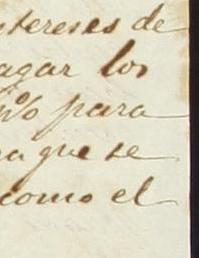 ntereses de
agar los
% para
a que se
como el